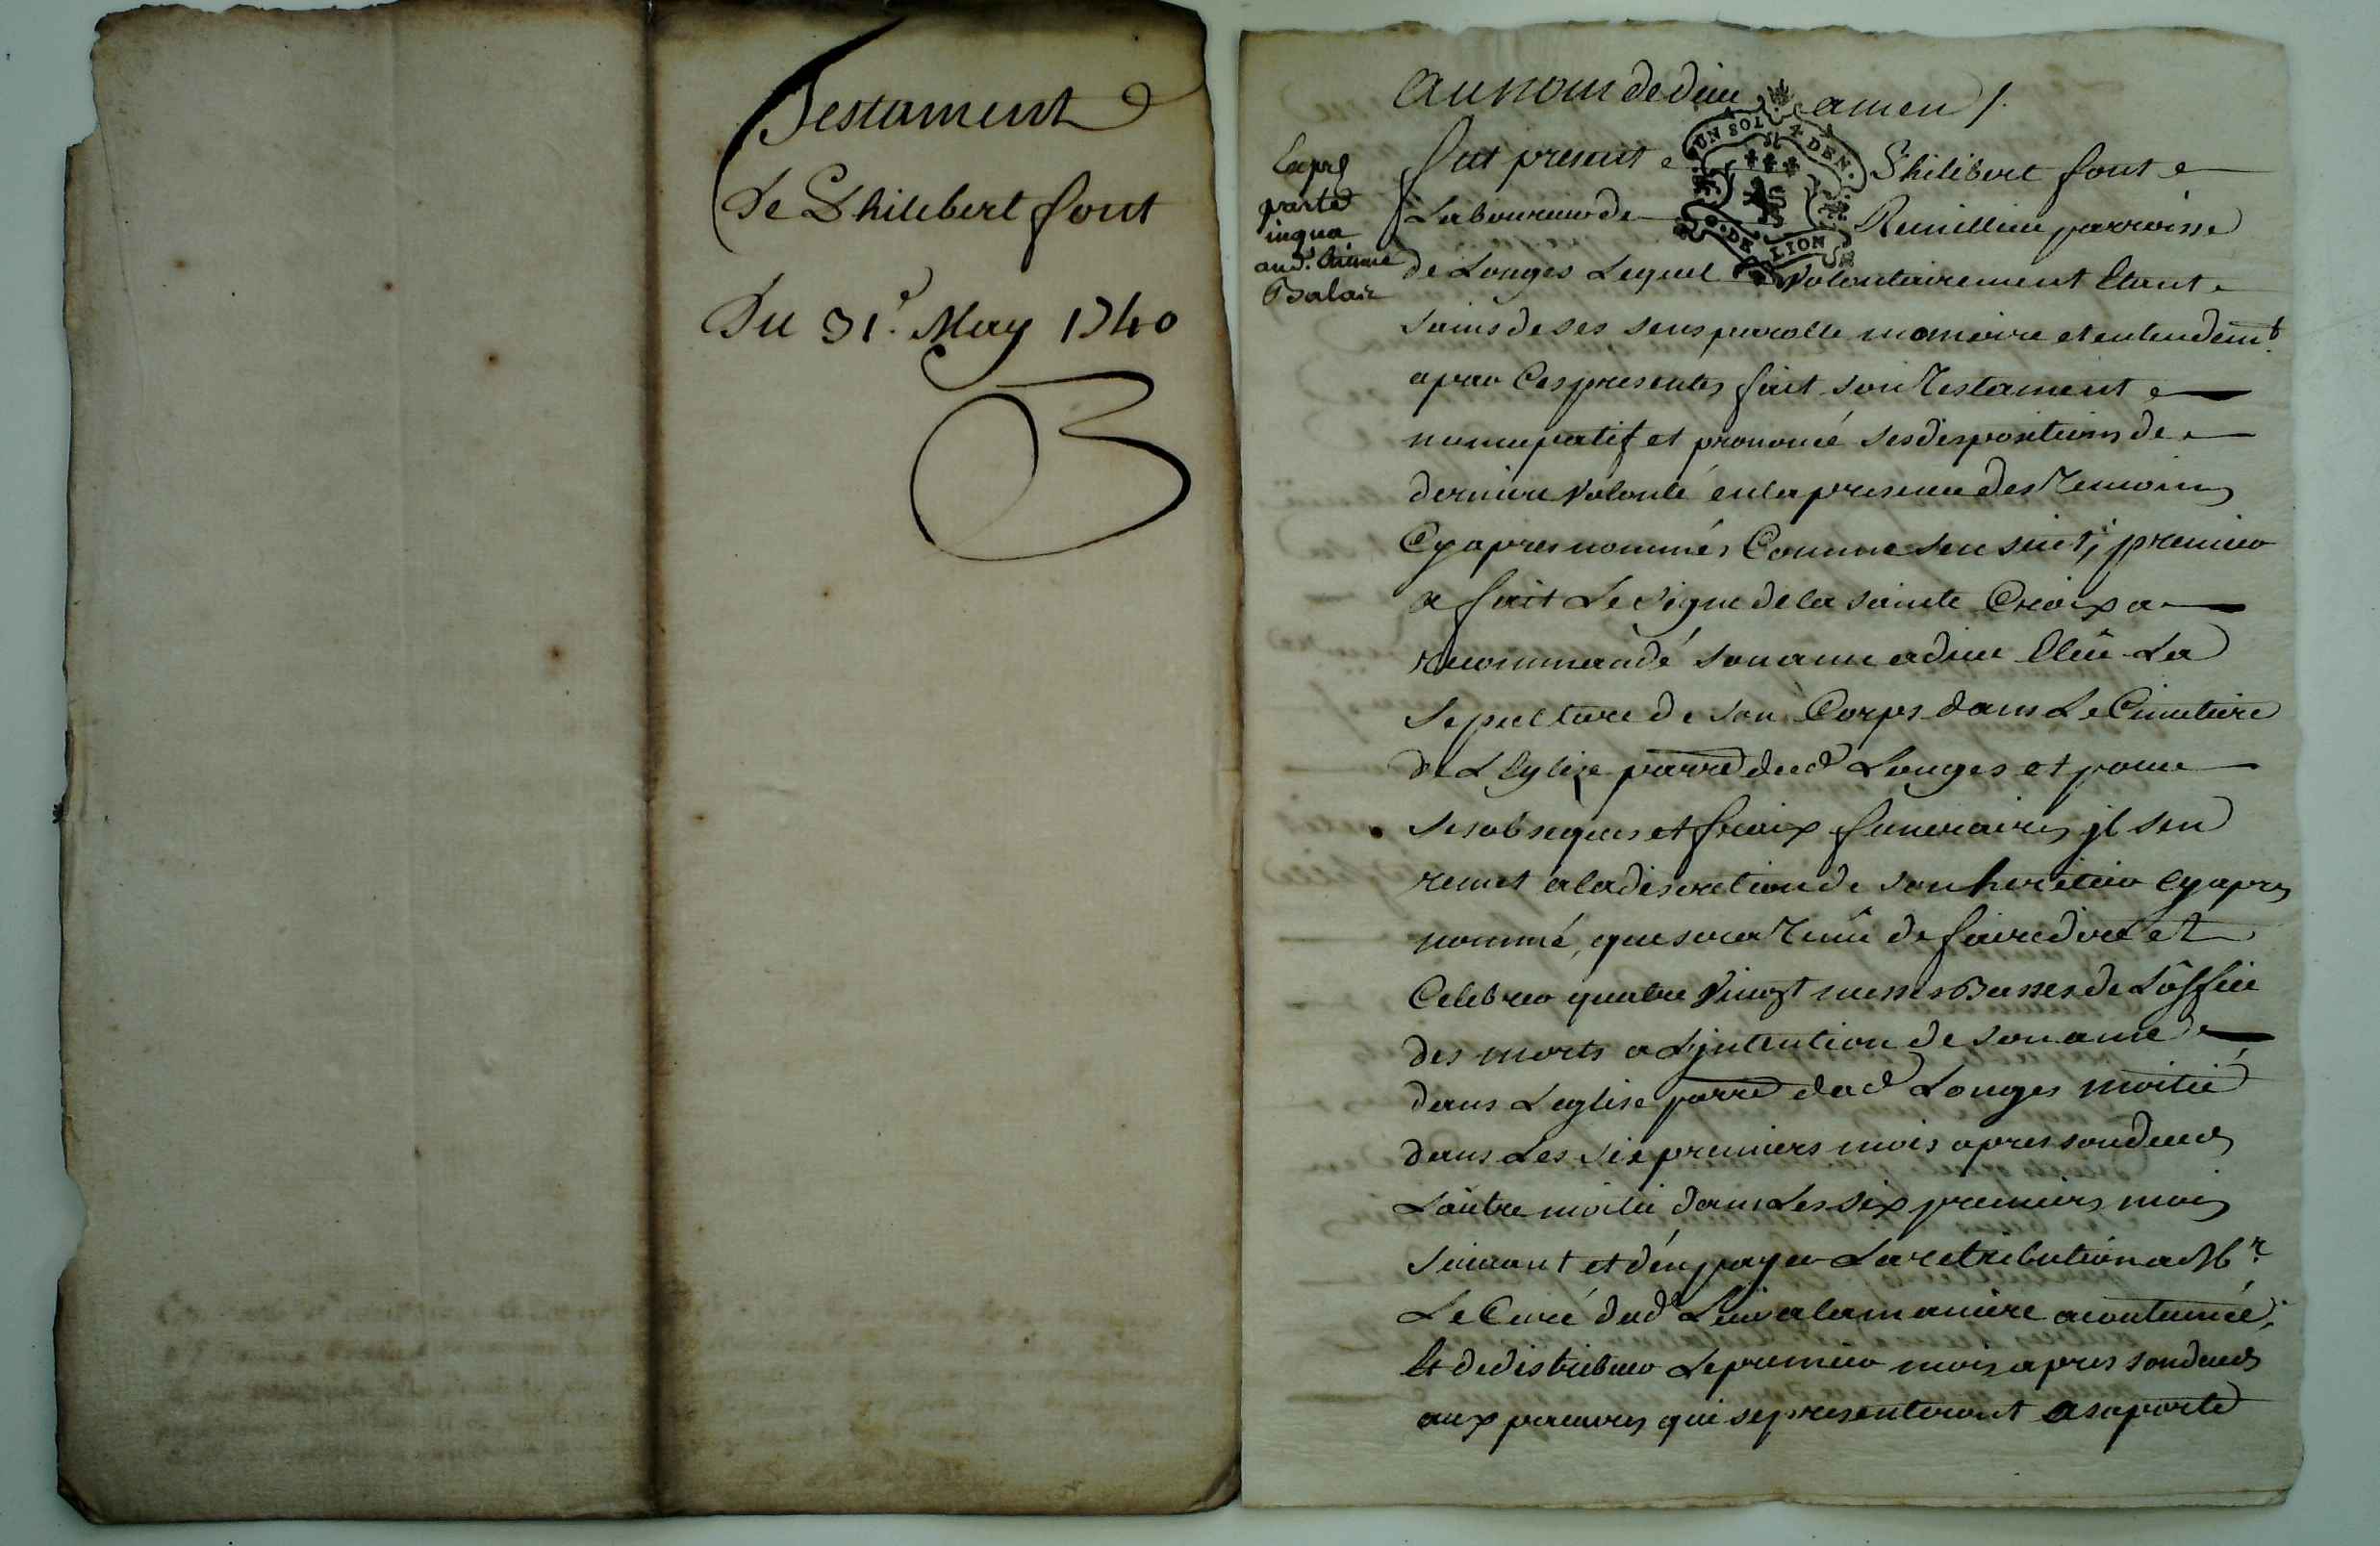 Testament
de Philibert font
Du 31e. May 1740
au nom de dieu amen /.
UN SOL 4 DEN.
G. DE LION
Expé
parte
in qua
and.
Balaic
fut present Philibert font
Laboureur de Remillieu parroisse
de Longes Lequel volontairement Etant
sains de ses sens parolle memoire et entendemt.
a par Ces presentes fait son Testament
nuncupatif et prononcé ses dispositions de
derniere volonté en la presence des Temoins
Cy apres nommés Comme sen suit, premier
a fait Le signe de la sainte Croix a
recommandé son ame a dieu Elû La
sepulture de son Corps dans Le Cimetiere
de L'Eglize parre dud Longes et pour
ses obseques et fraix funeraires jl sen
remet a la discretion de son heritier cy apres
nommé, que sera Tenû de faire dire et
Celebrer quatre vingt messes Basses de L'office
des morts a L'jntention de son ame
dans L'eglise parre dud Longes moitié
dans Les six premiers mois apres son deces
L'autre moitié dans Les six premiers mois
suivant et d'en payer La retribution a Mr.
Le Curé dud Lieu a la maniere acoutumée,
Et de distribuer Le premier mois apres son deces
aux pauvres qui se presenteront a sa porte